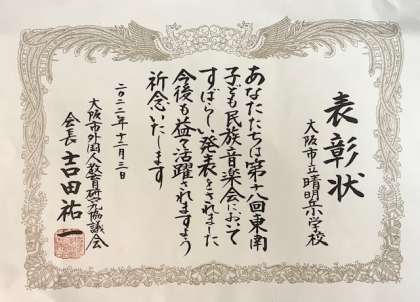 表彰状
大阪市立晴明丘小学校
あなたたちは第十八回東南
子ども民族音楽会において
すばらしい発表をされました
今後も益々活躍されますよう
祈念いたします
二〇二二年十二月三日
大阪市外国人教育研究協議会
会長 吉田祐一